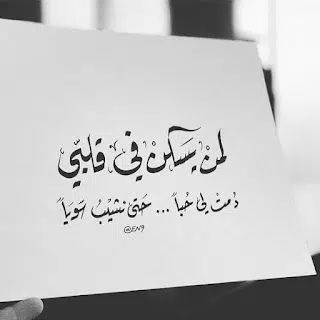 لمنْ يَسكنْ في قلبيّ
دُمتْ لي حُباً ... حَتىٰ نشيْبُ سَوياً